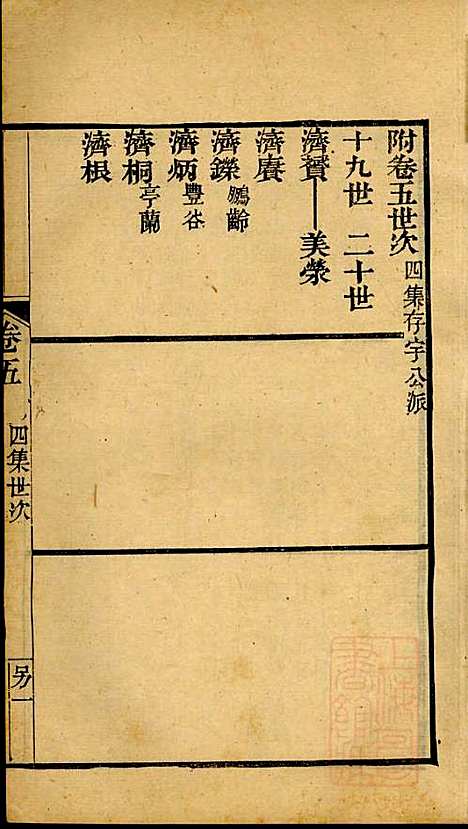 附卷五世次 四集存宇公派
十九世 二十世
濟贊 美榮
濟賡
濟鑠 鵬齡
濟炳 豐谷
濟桐 亭蘭
濟根
卷五 四集世次 另一